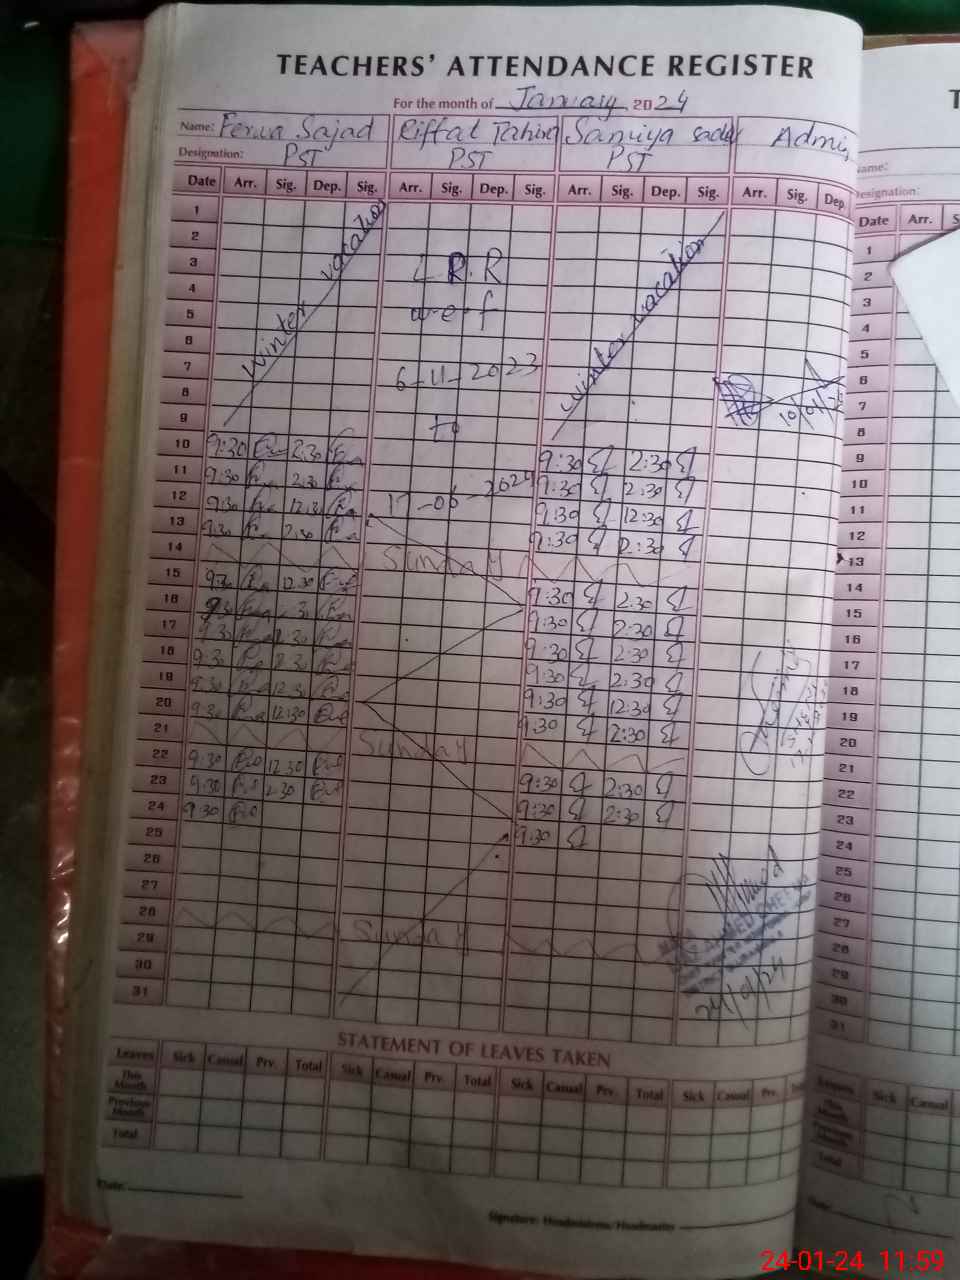 TEACHERS' ATTENDANCE REGISTER
For the month of January, 2024
Name: Ferwa Sajad Riffat Tahira Samiya sadaf Admin
Designation: PST PST PST
Date Arr. Sig. Dep. Sig. Arr. Sig. Dep. Sig. Arr. Sig. Dep. Sig. Arr. Sig. Dep.
1
2
3 L R.R
4
5 w.e.f
6
7 6-11-2023
8 10/01/24
9 to
winter vacation
winter vacation
10 9:30 2:30 9:30 2:30
11 9:30 2:30 9:30 2:30
12 9:30 12:30 17-06-2024 9:30 12:30
13 9:30 2:30 9:30 2:30
14 Sunday
15 9:30 12:30 9:30 2:30
16 9:30 9:30 2:30
17 9:30 2:30 9:30 2:30
18 9:30 2:30 9:30 2:30
19 9:30 12:30 9:30 12:30
20 9:30 12:30 9:30 2:30
21 Sunday
22 9:30 12:30 9:30 2:30
23 9:30 2:30 9:30 2:30
24 9:30 9:30
25
26
27
28 Sunday
29
30
31
24/01/24
STATEMENT OF LEAVES TAKEN
Leaves Sick Casual Prv. Total Sick Casual Prv. Total Sick Casual Prv. Total Sick Casual Prv.
This Month
Previous Month
Total
Date:
Signature: Headmistress/Headmaster
T
Name:
Designation:
Date Arr. S
1
2
3
4
5
6
7
8
9
10
11
12
13
14
15
16
17
18
19
20
21
22
23
24
25
26
27
28
29
30
31
Leaves Sick Casual
This Month
Previous Month
Total
Date:
24-01-24 11:59